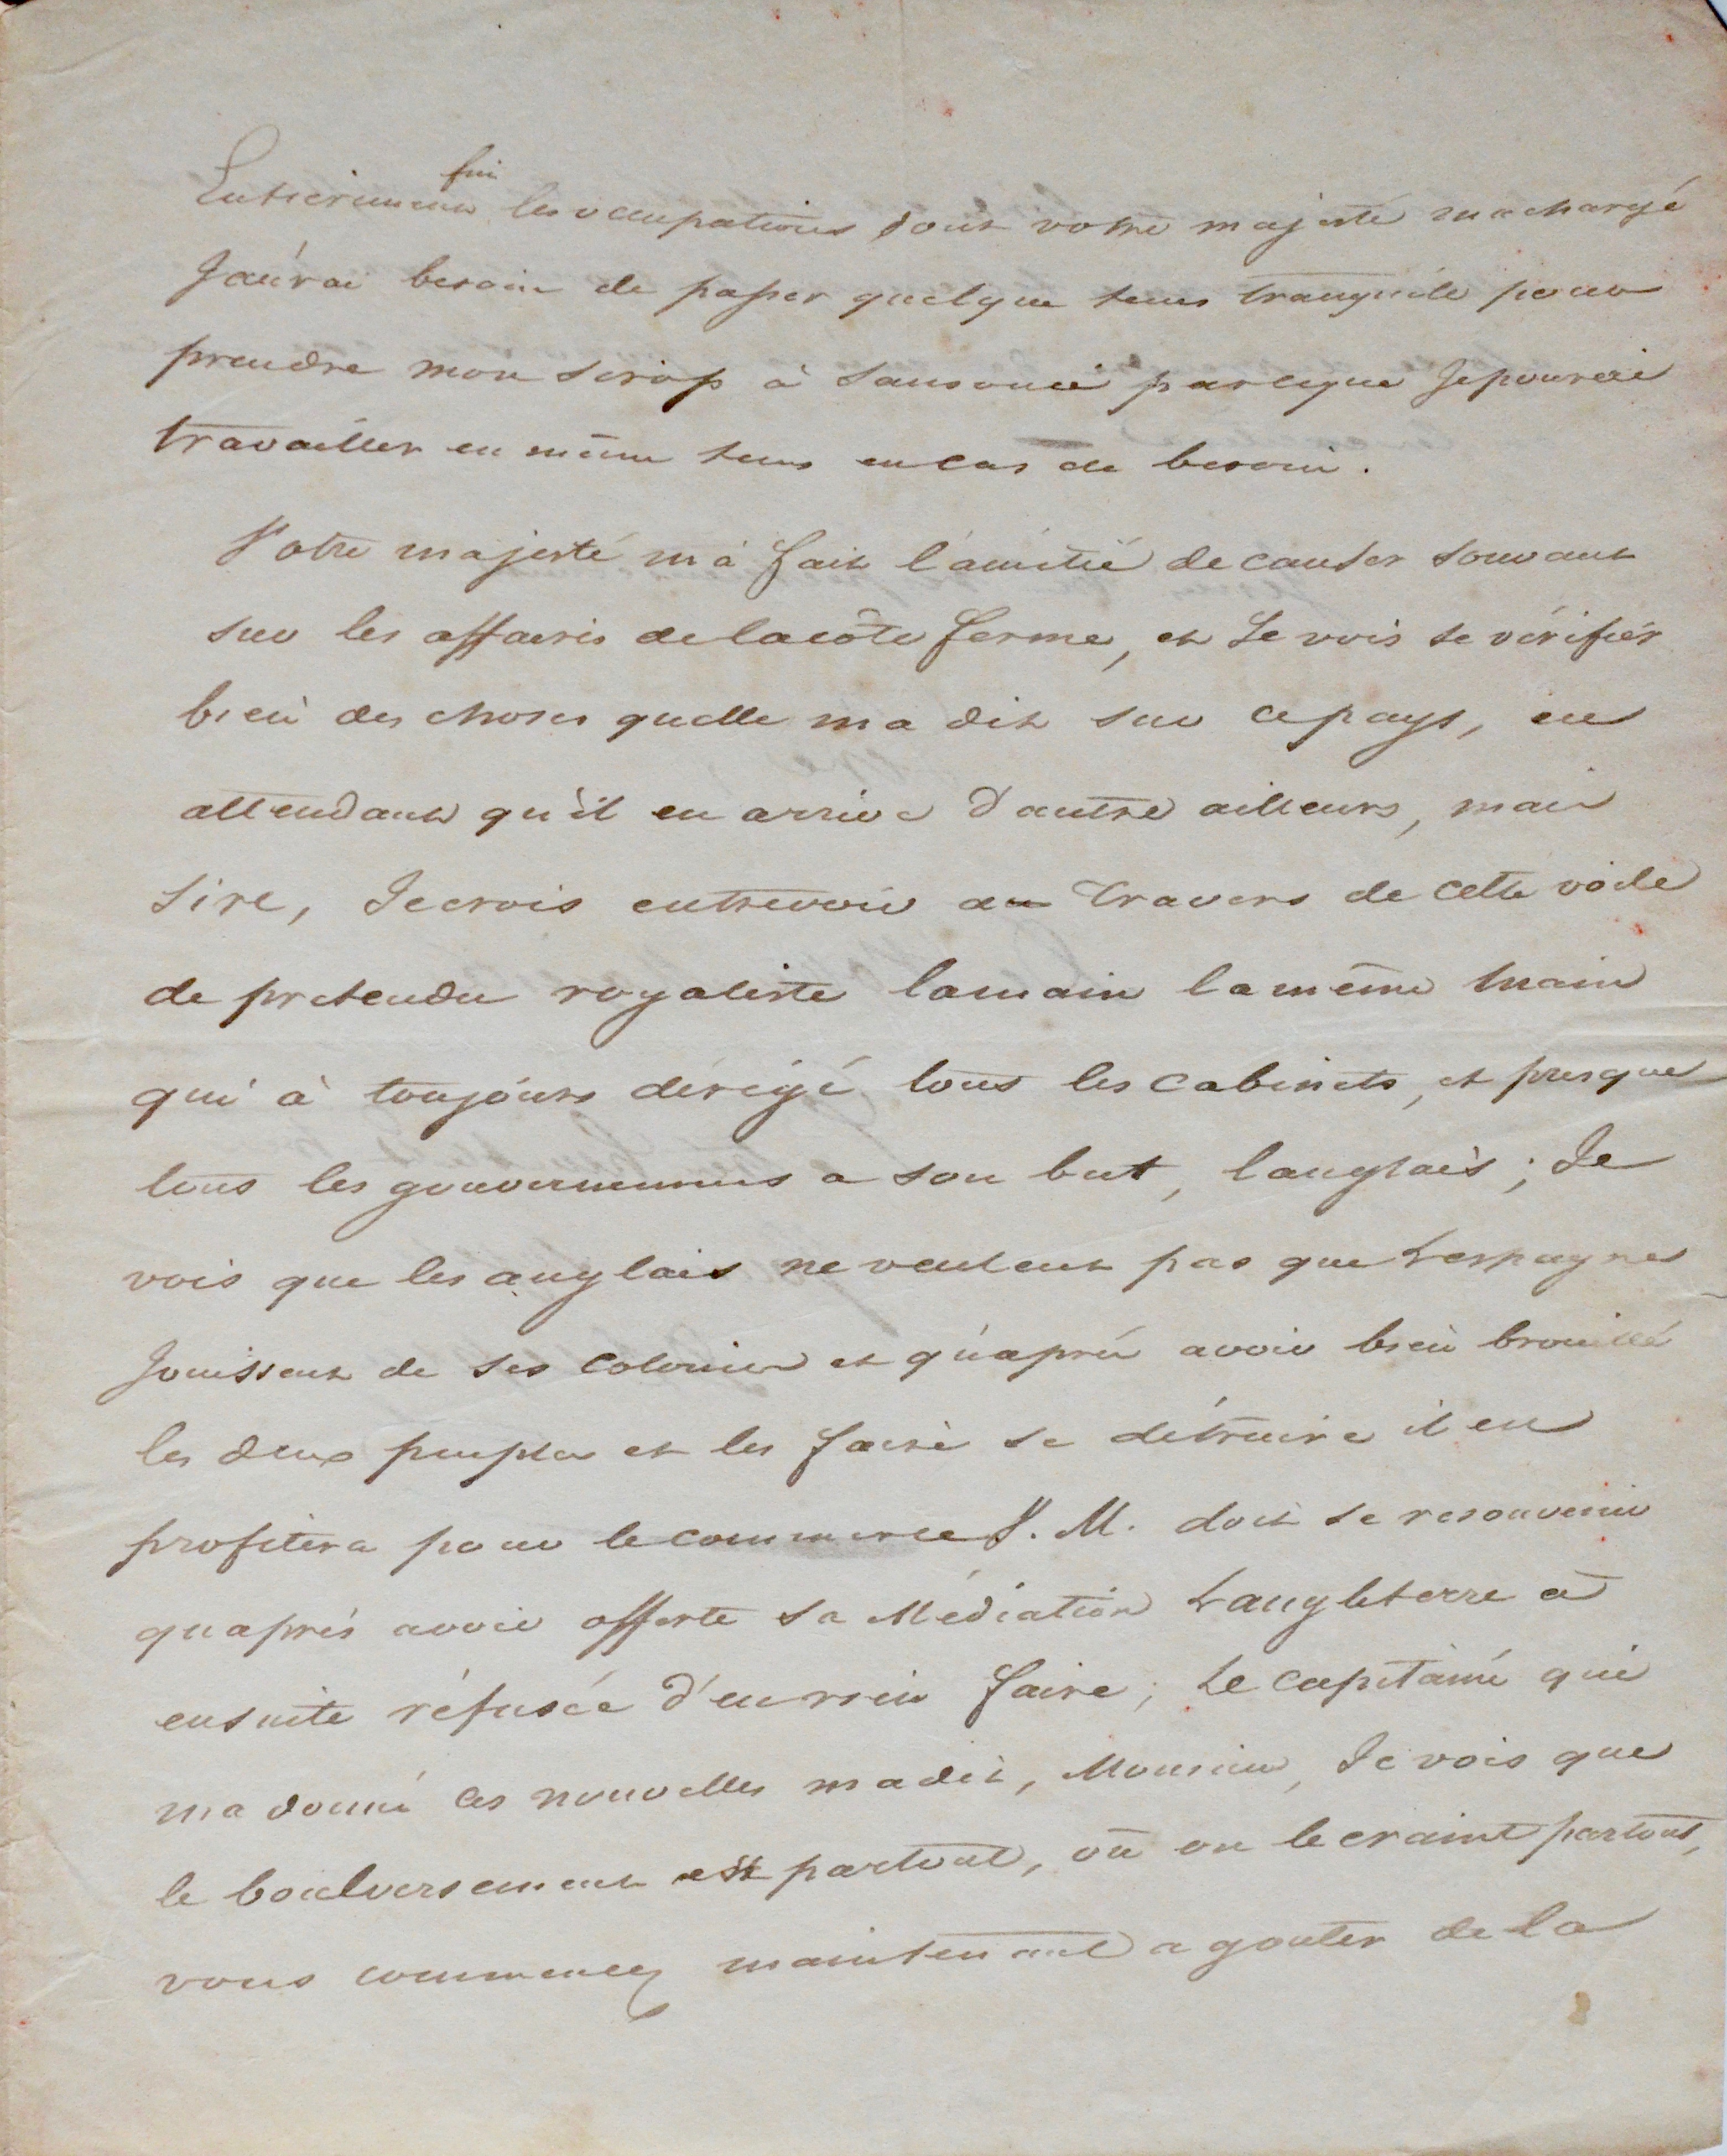 fini
Entierement les ocupations dont votre majesté ma chargé
Jaúrai besoin de passer quelque tems tranquile pour
prendre mon sirop à Sansouci parceque Je pourai
travailler en même tems en cas de besoin.
Votre majesté má fait l'ámitié de causer souvant
sur les affaires de la côte ferme, et Je vois se vérifiér
bien des choses quelle ma dit sur ce pays, en
attendant qu'il en arrive d'autre ailleurs, mais
Sire, Je crois entrevoir au travers de cette voile
de pretendu royaliste la main la même main
qui à toujóurs dérigé tous les cabinets, et presque
tous les gouvernemens a son but, langlais; Je
vois que les anglais ne veulent pas que Lespagne
Jouissent de ses colonies et qu'aprés avoir bien brouillé
les deux peuples et les faire se détruire il en
profitera pour le commerce V. M. doit se resouvenir
quaprés avoir offerte sa Médiation Langleterre à
ensuite réfusée d'en rien faire; Le capitaine qui
ma donné ces nouvelles ma dit, Monsieur, Je vois que
le boulversement est partout, où on le craint partout,
vous commencez maintenant a gouter de la